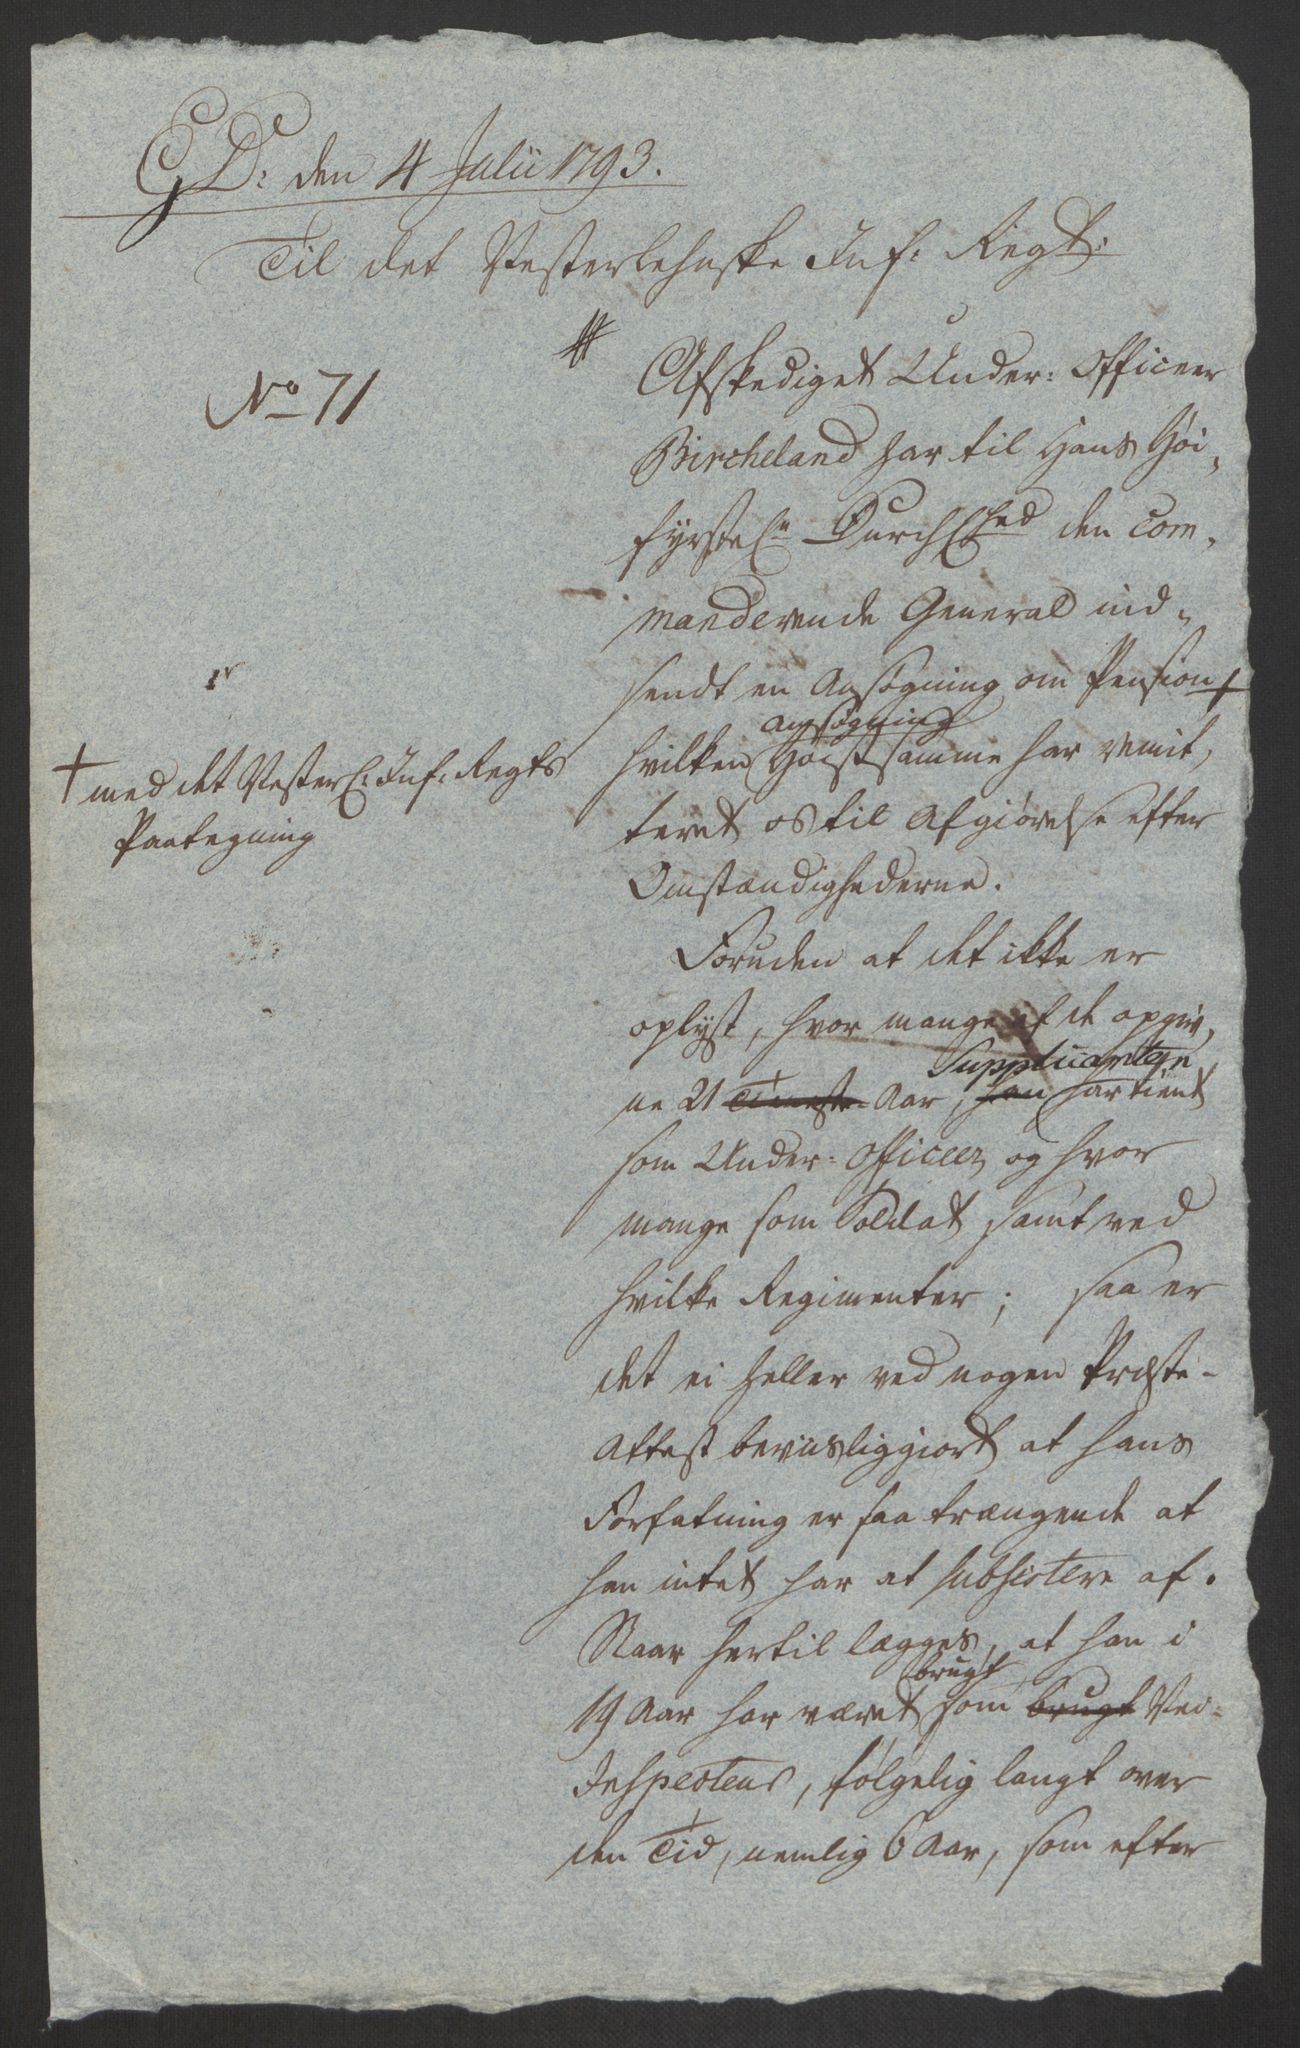 GD: den 4 Julii 1793.
Til det Vesterlehnske Inf: Regt:
No 71
Afskediget Under: Officeer
Bircheland har til Hans Høi,
fyrstel: Durchl:hed den com,
manderende General ind,
sendt en Ansøgning om Pension +
+ med det Vesterl: Inf: Regts
Paategning
ansøgning
hvilken Høistsamme har remit,
teret os til Afgiørelse efter
Omstændighederne.
Foruden at det ikke er
oplyst, hvor mange af de opgiv,
Supplicanten
ne 21 Aar, han har tient
som Under: Officeer, og hvor
mange som Soldat samt ved
hvilke Regimenter; saa er
det ei heller ved nogen Præste-
Attest beviisliggiort at hans
Forfatning er saa trængende at
han intet har at subsistere af.
Naar hertil lægges, at han i
brugt
19 Aar har været som brugt Vei-
Inspecteur, følgelig langt over
den Tid, nemlig 6 Aar, som efter